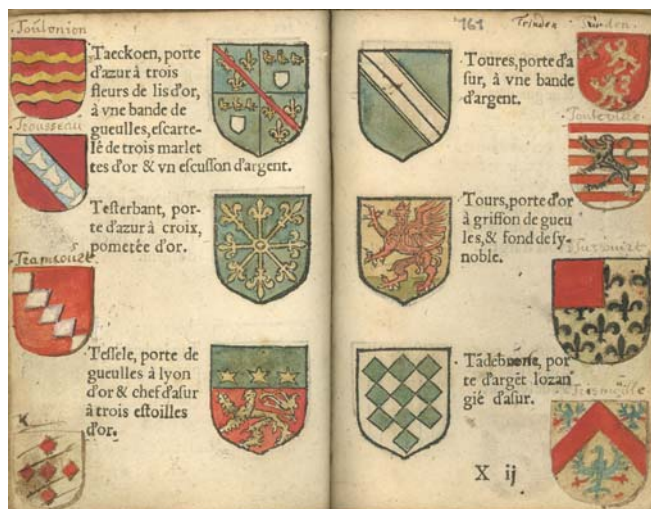 Toulonion
Taeckoen, porte
d'azur à trois
fleurs de lis d'or,
à vne bande de
gueulles, escarte-
lé de trois marlet
tes d'or & vn escusson d'argent.
Trousseau
Testerbant, por-
te d'azur à croix,
pometée d'or.
Tramcourt
Tessele, porte de
gueulles à lyon
d'or & chef d'asur
à trois estoilles
d'or.
161
Trinden
Toures, porte d'a
sur, à vne bande
d'argent.
Touteville
Tours, porte d'or
à griffon de gueu
les, & fond de sy-
noble.
Tādebuone, por
te d'argēt lozan
gié d'asur.
X ij